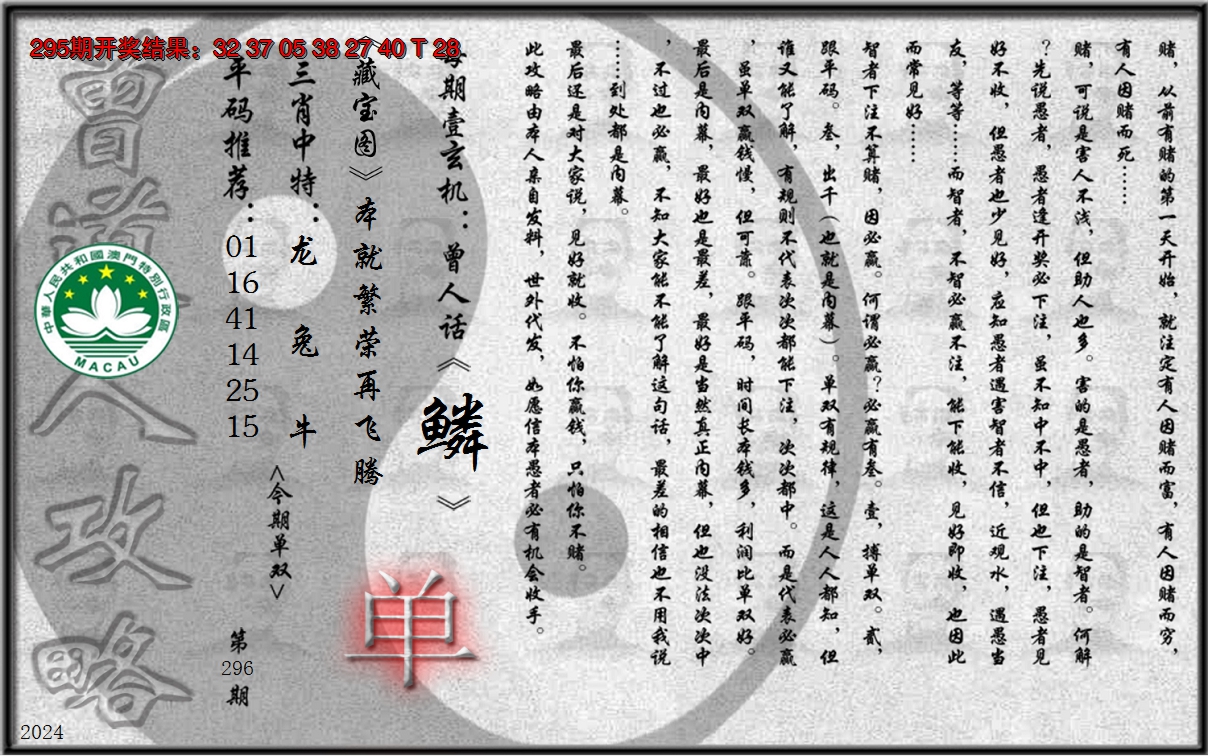 295期开奖结果：32 37 05 38 27 40 T 28
赌，从前有赌的第一天开始，就注定有人因赌而富，有人因赌而穷，
有人因赌而死……
赌，可说是害人不浅，但助人也多。害的是愚者，助的是智者。何解
？先说愚者，愚者逢开奖必下注，虽不知中不中，但也下注，愚者见
好不收，但愚者也少见好，应知愚者遇害智者不信，近观水，遇愚当
友，等等……而智者，不智必赢不注，能下能收，见好即收，也因此
而常见好……
智者下注不算赌，因必赢。何谓必赢？必赢有叁。壹，搏单双。贰，
跟平码。叁，出千（也就是内幕）。单双有规律，这是人人都知，但
谁又能了解，有规则不代表次次都能下注，次次都中。而是代表必赢
，虽单双赢钱慢，但可靠。跟平码，时间长本钱多，利润比单双好。
最后是内幕，最好也是最差，最好是当然真正内幕，但也没法次次中
，不过也必赢，不知大家能不能了解这句话，最差的相信也不用我说
……到处都是内幕。
最后还是对大家说，见好就收。不怕你赢钱，只怕你不赌。
此攻略由本人亲自发料，世外代发，如愿信本愚者必有机会收手。
每期壹玄机：曾人话《鳞》
《藏宝图》本就繁荣再飞腾
三肖中特：龙 兔 牛
<今期单双>
单
平码推荐：01 16 41 14 25 15
第296期
曾道人攻略
中華人民共和國澳門特別行政區
MACAU
2024